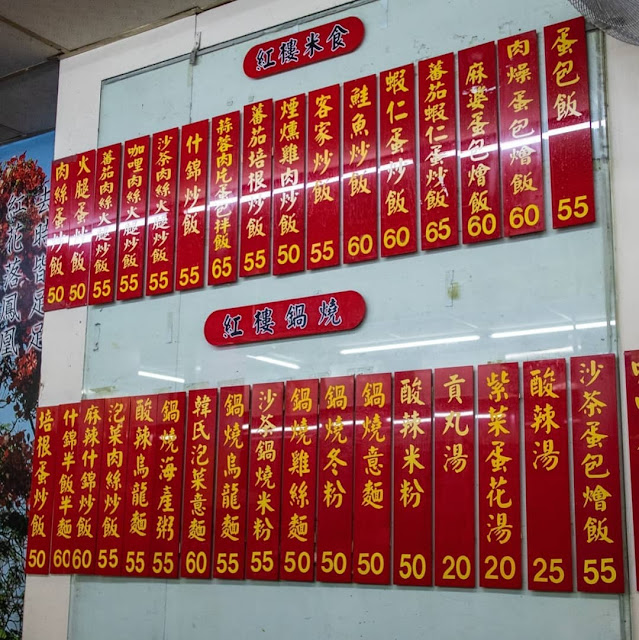 紅樓米食
蛋包飯 55
肉燥蛋包燴飯 60
麻婆蛋包燴飯 60
番茄蝦仁蛋炒飯 65
蝦仁蛋炒飯 60
鮭魚炒飯 60
客家炒飯 55
煙燻雞肉炒飯 50
番茄培根炒飯 55
蒜蓉肉片蛋包拌飯 65
什錦炒飯 55
沙茶肉絲火腿炒飯 55
咖哩肉絲火腿炒飯 55
番茄肉絲火腿炒飯 55
火腿蛋炒飯 50
肉絲蛋炒飯 50
紅樓鍋燒
沙茶蛋包燴飯 55
酸辣湯 25
紫菜蛋花湯 20
貢丸湯 20
酸辣米粉 50
鍋燒意麵 50
鍋燒冬粉 50
鍋燒雞絲麵 50
沙茶鍋燒米粉 55
鍋燒烏龍麵 55
韓氏泡菜意麵 60
鍋燒海產粥 55
酸辣烏龍麵 55
泡菜肉絲炒飯 55
麻辣什錦炒飯 60
什錦半飯半麵 60
培根蛋炒飯 50
紅花落鳳凰